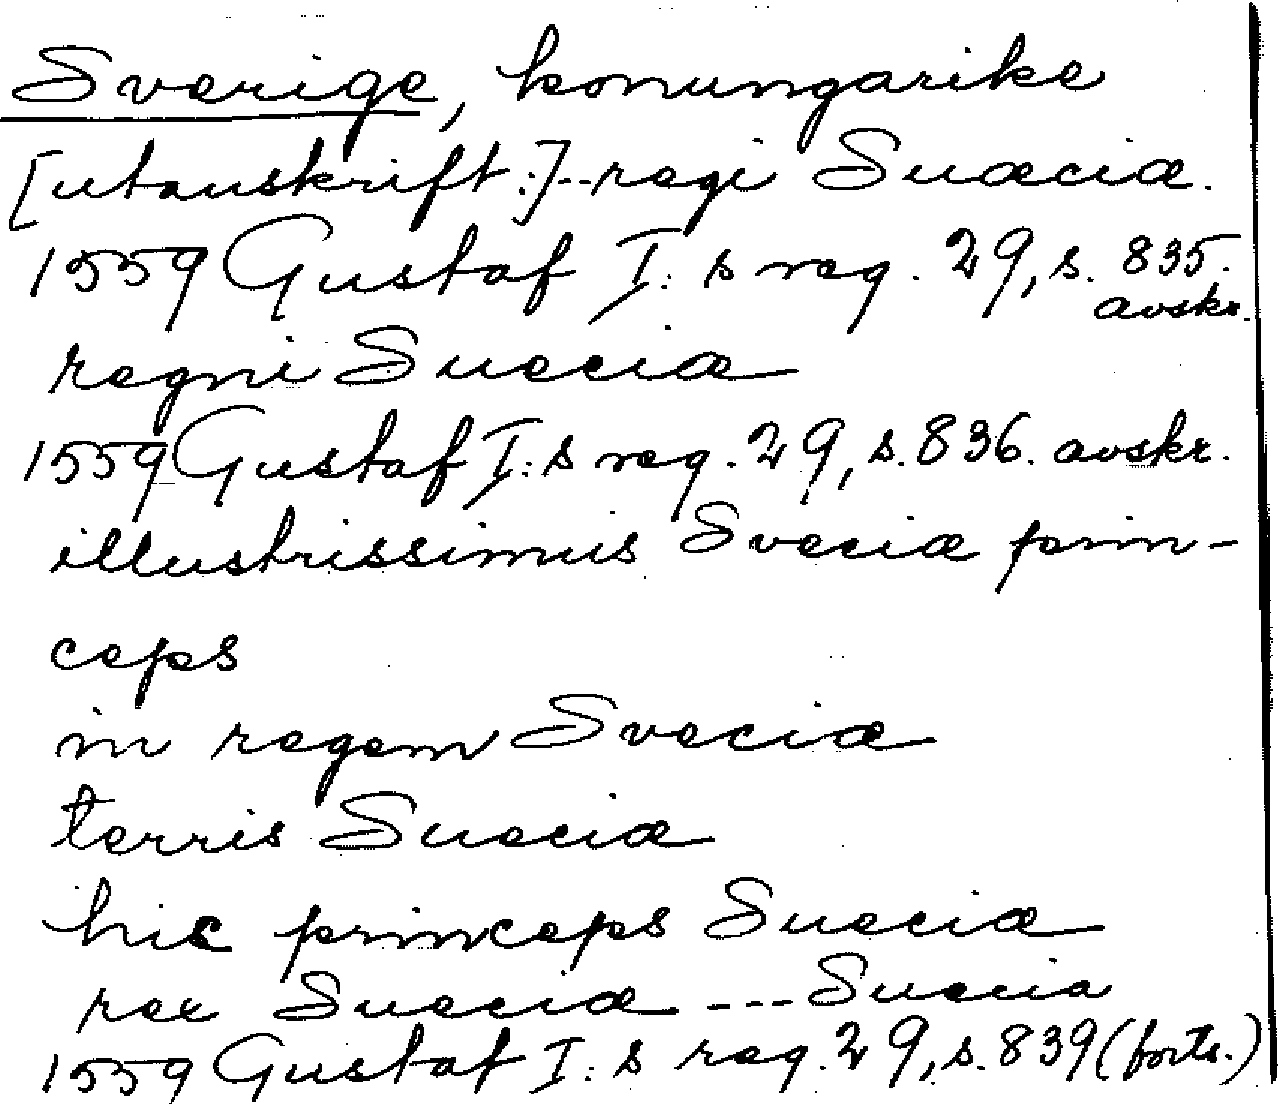 Sverige, konungarike
[utanskrift:]--regi Suæciæ.
1559 Gustaf I:s reg. 29, s. 835.
avskr.
regni Sueciæ
1559 Gustaf I:s reg. 29, s. 836. avskr.
illustrissimus Sveciæ prin-
ceps
in regem Sveciæ
terris Sueciæ
hic princeps Sueciæ
rex Sueciæ --- Suecia
1559 Gustaf I:s reg. 29, s. 839 (forts.)